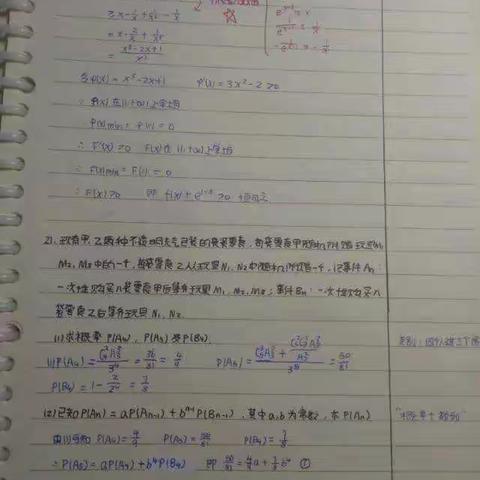 ≥x-1/x+1/x²-1/x
=x-2/x+1/x²
=(x³-2x+1)/x²
令φ(x)=x³-2x+1 φ'(x)=3x²-2≥0
∴φ(x)在(1,+∞)上单增
φ(x)min=φ(1)=0
∴F'(x)≥0 F(x)在(1,+∞)上单增
∴F(x)min=F(1)=0
∴F(x)≥0 即f(x)+e^(1-x)≥0恒成立
21、现有甲、乙两种不透明充气包装的袋装零食,每袋零食甲随机附赠玩具M₁,
M₂,M₃中的一个,每袋零食乙从玩具N₁,N₂中随机附赠一个,记事件An:
一次性购买n袋零食甲后集齐玩具M₁,M₂,M₃;事件Bn:一次性购买n
袋零食乙后集齐玩具N₁,N₂.
(1)求概率P(A₄),P(A₅)及P(B₄).
(1)P(A₄)=C₄²A₃³/3⁴=36/81=4/9 P(A₅)= =50/81
P(B₄)=1-2/2⁴=7/8
(2)已知P(An)=aP(An-1)+bⁿ⁻¹P(Bn-1),其中a,b为常数,求P(An)
由(1)可知 P(A₄)=4/9 P(A₅)=50/81 P(B₄)=7/8
∴P(A₅)=aP(A₄)+b⁴P(B₄) 即50/81=4/9a+7/8b⁴ ①